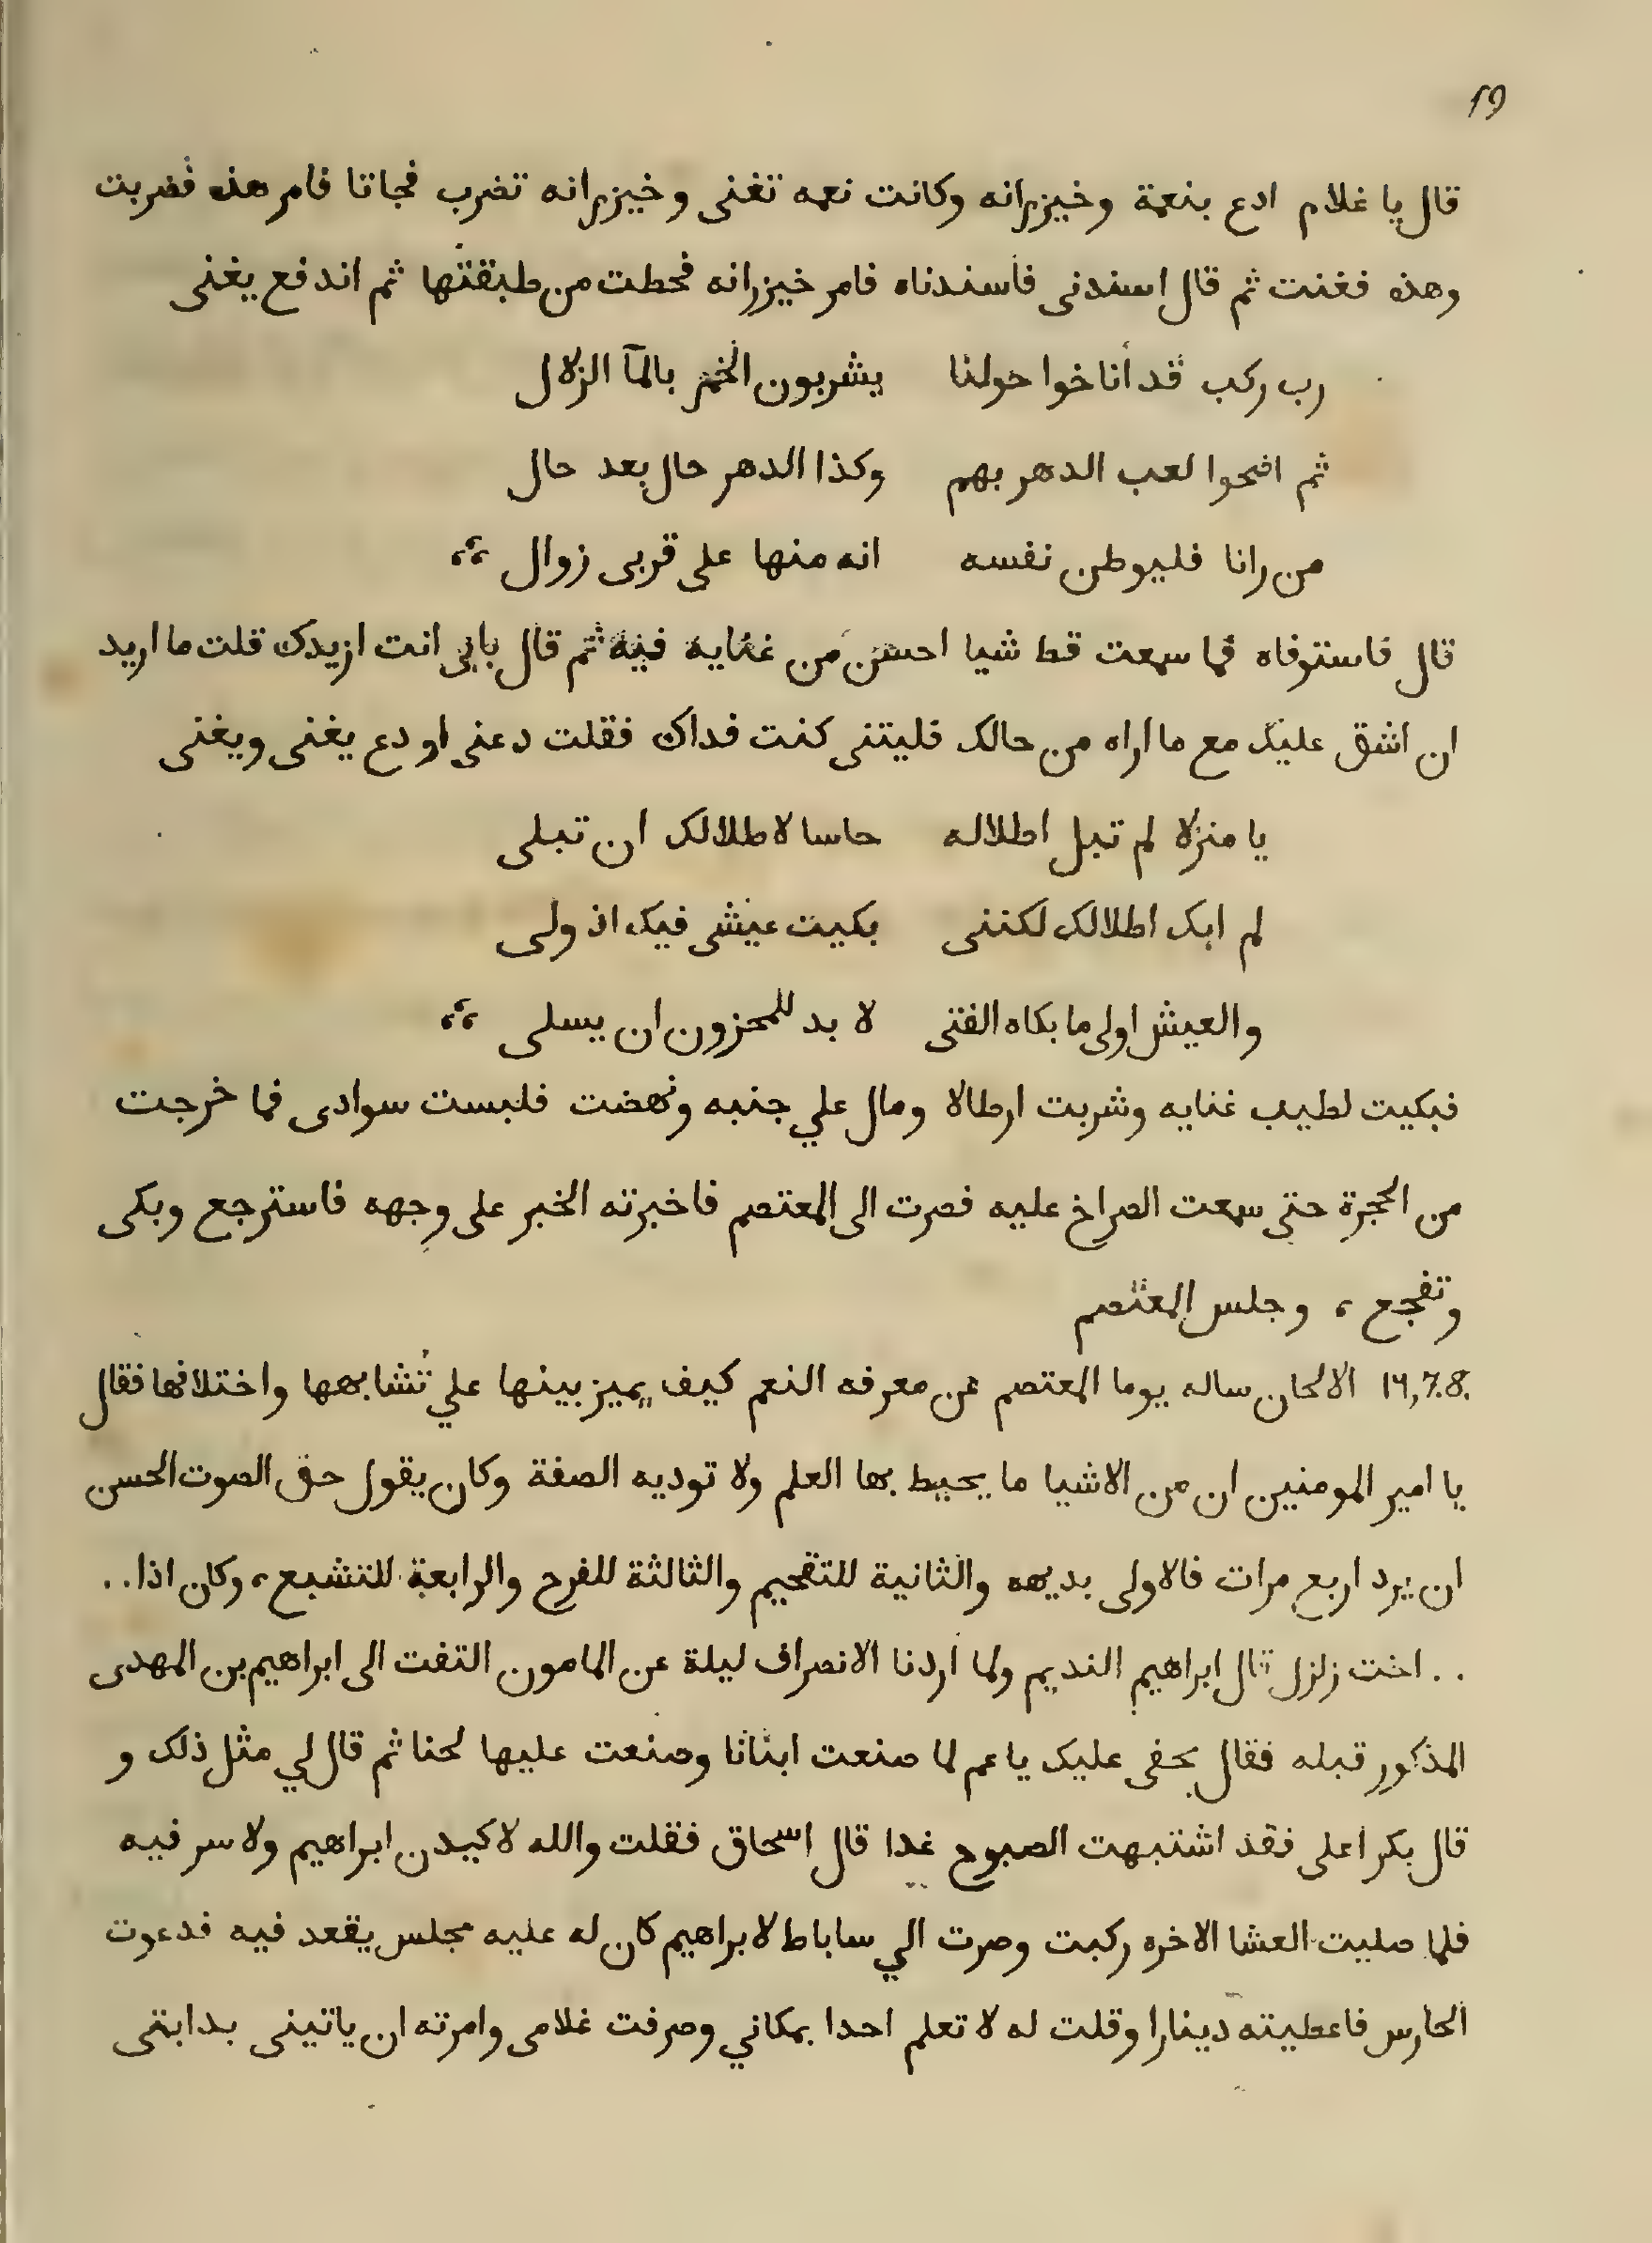 19
قال يا غلام ادع بنعمة وخيزرانه وكانت نعمه تغنى وخيزرانه تضرب فجاتا فامر هذه فضربت
وهذه فغنت ثم قال اسندنى فأسندناه فامر خيزرانه فحطت من طبقتها ثم اندفع يغنى
رب ركب قد أناخوا حولنا يشربون الخمر بالمآ الزلال
ثم اضحوا لعب الدهر بهم وكذا الدهر حال بعد حال
من رانا فليوطن نفسه انه منها على قربى زوال
قال فاستوفاه فما سمعت قط شيا احسن من غنايه فيه ثم قال بابى انت ازيدك قلت ما اريد
ان اشق عليك مع ما اراه من حالك فليتنى كنت فداك فقلت دعنى اودع يغنى ويغنى
يا منزلا لم تبل اطلاله حاسا لاطلالك ان تبلى
لم ابك اطلالك لكننى بكيت عيشى فيك اذ ولى
والعيش اولى ما بكاه الفتى لا بد للمحزون ان يسلى
فبكيت لطيب غنايه وشربت ارطالا ومال علي جنبه ونهضت فلبست سوادى فما خرجت
من الحجرة حتى سمعت الصراخ عليه فصرت الى المعتصم فاخبرته الخبر على وجهه فاسترجع وبكى
وتفجع ، وجلس المعتصم
16,7.8. الالحان ساله يوما المعتصم عن معرفه النغم كيف يميز بينها علي تشابهها واختلافها فقال
يا امير المومنين ان من الاشيا ما يحيط بها العلم ولا توديه الصفة وكان يقول حق الصوت الحسن
ان يرد اربع مرات فالاولى بديهه والثانية للتفحيم والثالثة للفرح والرابعة للتشبع ، وكان اذا ..
.. اخت زلزل قال ابراهيم النديم ولما أردنا الانصراف ليلة عن المامون التفت الى ابراهيم بن المهدى
المذكور قبله فقال بحفى عليك يا عم لما صنعت ابناتا وصنعت عليها لحنا ثم قال لي مثل ذلك و
قال بكرا على فقد اشتبهت الصبوح غدا قال اسحاق فقلت والله لاكيدن ابراهيم ولا سر فيه
فلما صليت العشا الاخره ركبت وصرت الي ساباط لابراهيم كان له عليه مجلس يقعد فيه فدعوت
الحارس فاعطيته دينارا وقلت له لا تعلم احدا بمكاني وصرفت غلامى وامرته ان ياتينى بدابتى